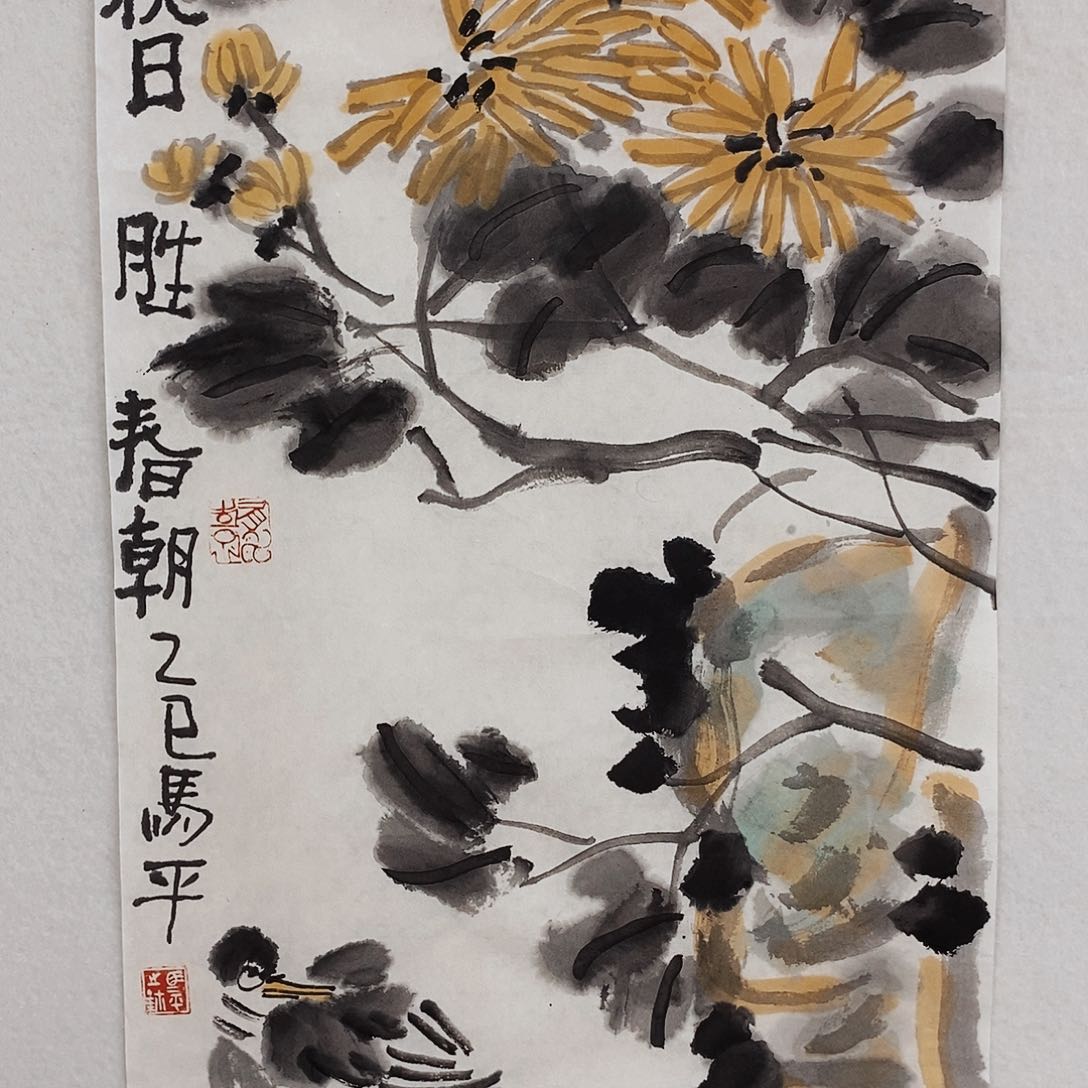 秋日胜春朝乙巳馬平